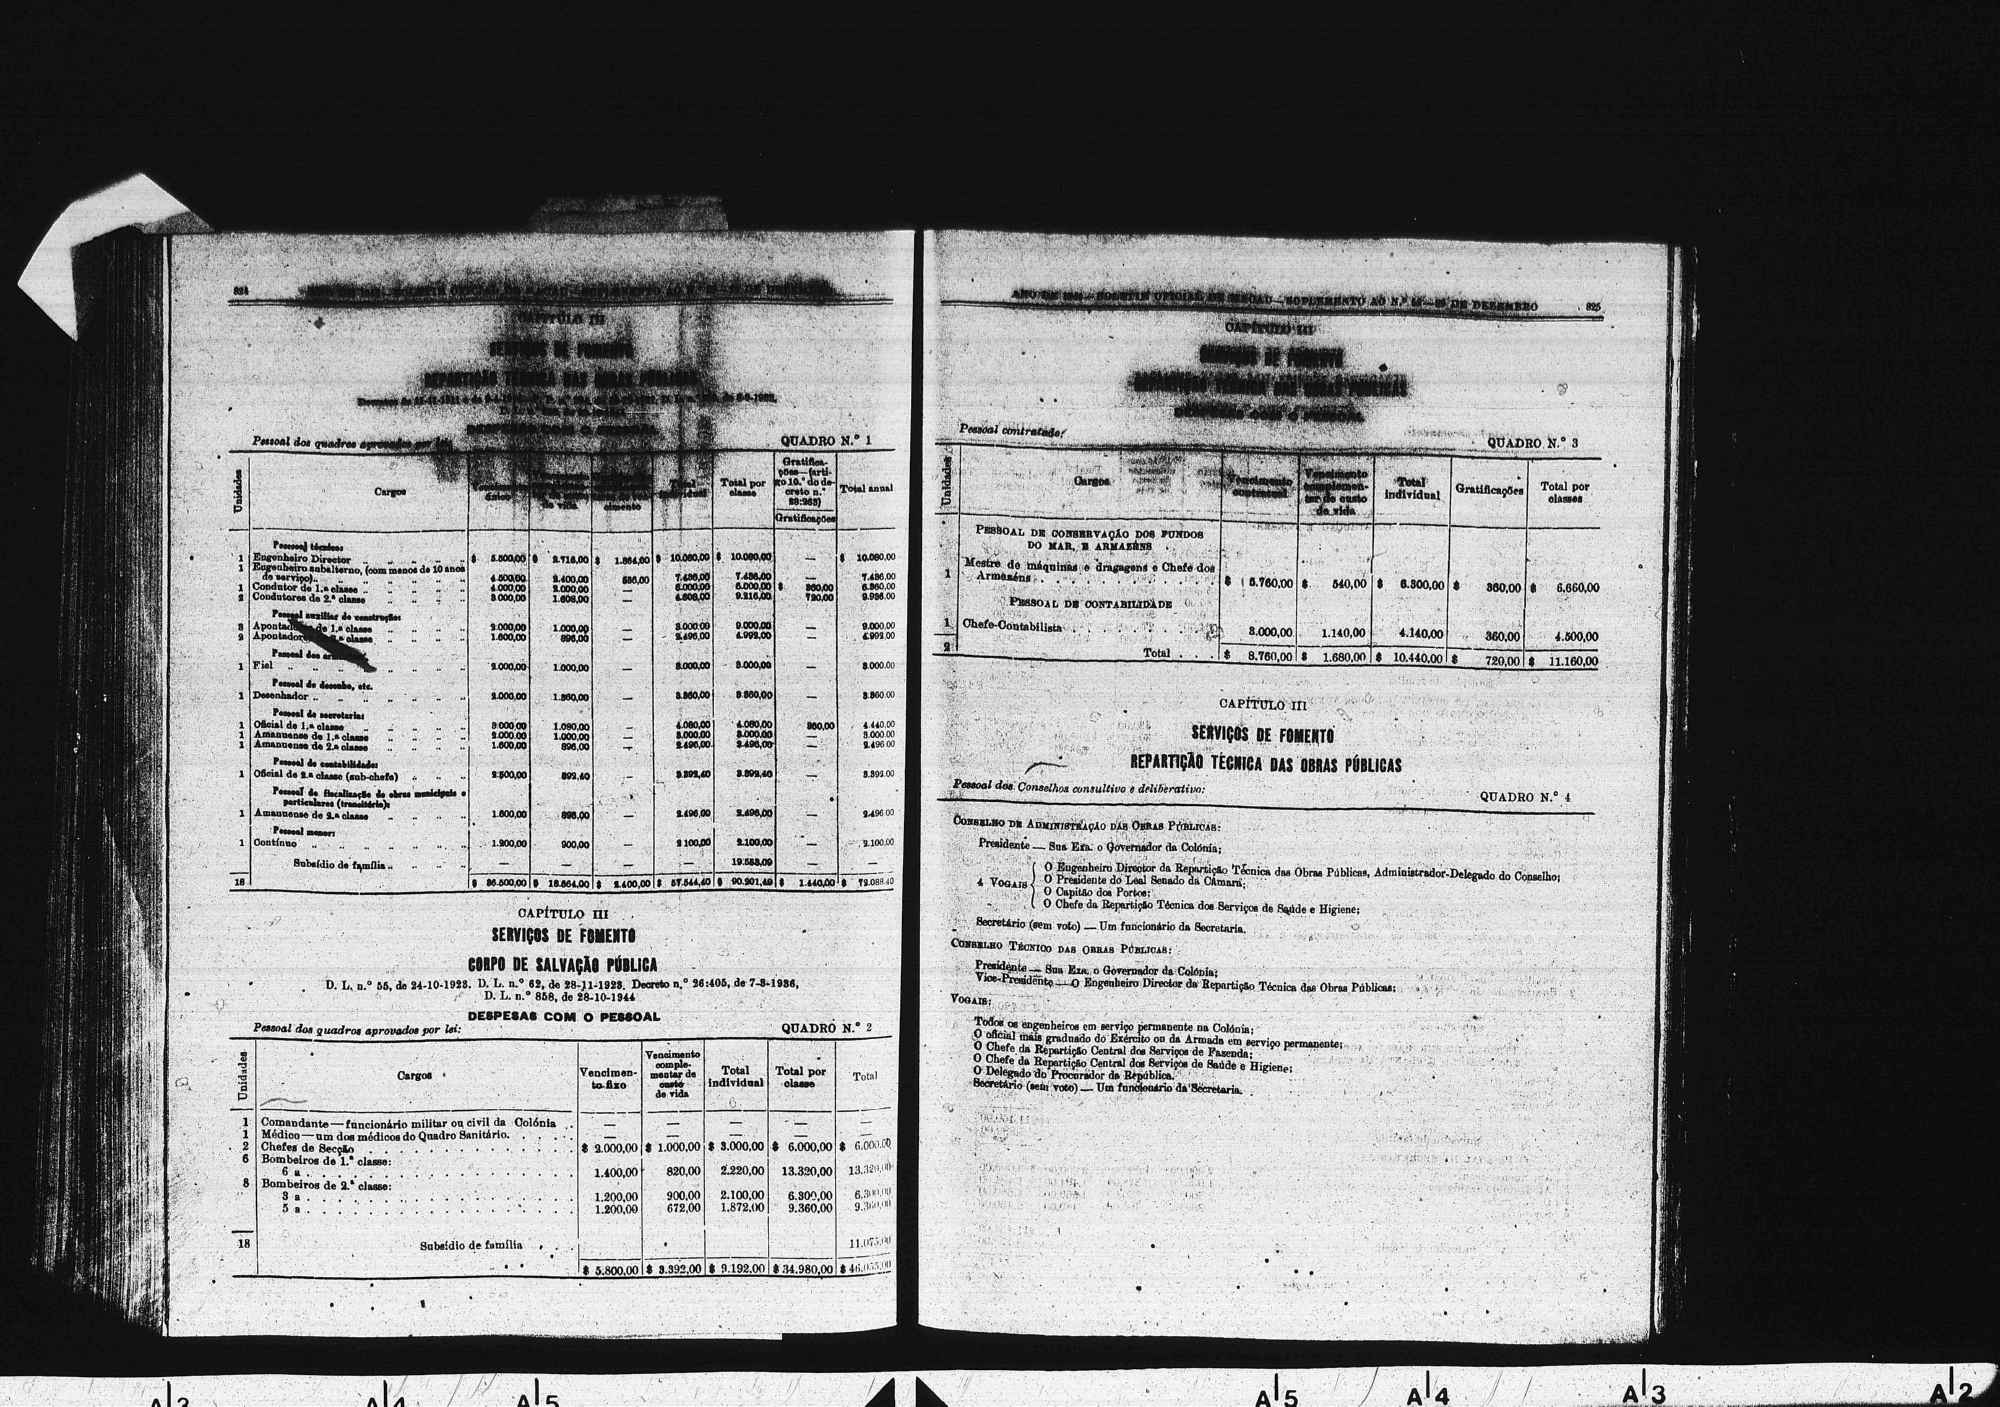 824
CAPÍTULO III
SERVIÇOS DE FOMENTO
REPARTIÇÃO TÉCNICA DAS OBRAS PÚBLICAS
Pessoal dos quadros aprovados por lei: QUADRO N.º 1
Unidades Cargos único de vida cimento Total individual Total por classe Gratificações—(artigo 10.º do decreto n.º 28:263) Gratificações Total anual
Pessoal técnico:
1 Engenheiro Director $ 5.500,00 $ 2.716,00 $ 1.864,00 $ 10.080,00 $ 10.080,00 — $ 10.080,00
1 Engenheiro subalterno, (com menos de 10 anos
de serviço) 4.500,00 2.400,00 586,00 7.486,00 7.486,00 — 7.486,00
1 Condutor de 1.ª classe 4.000,00 2.000,00 — 6.000,00 6.000,00 $ 360,00 6.360,00
2 Condutores de 2.ª classe 3.000,00 1.608,00 — 4.608,00 9.216,00 720,00 9.936,00
Pessoal auxiliar de construção:
3 de 1.ª classe 2.000,00 1.000,00 — 3.000,00 9.000,00 — 9.000,00
2 classe 1.600,00 896,00 — 2.496,00 4.992,00 — 4.992,00
Pessoal dos
1 Fiel 2.000,00 1.000,00 — 3.000,00 3.000,00 — 3.000,00
Pessoal de desenho, etc.
1 Desenhador 2.000,00 1.360,00 — 3.360,00 3.360,00 — 3.360,00
Pessoal de secretaria:
1 Oficial de 1.ª classe 3.000,00 1.080,00 — 4.080,00 4.080,00 360,00 4.440,00
1 Amanuense de 1.ª classe 2.000,00 1.000,00 — 3.000,00 3.000,00 — 3.000,00
1 Amanuense de 2.ª classe 1.600,00 896,00 — 2.496,00 2.496,00 — 2.496,00
Pessoal de contabilidade:
1 Oficial de 2.ª classe (sub-chefe) 2.500,00 892,40 — 3.392,40 3.392,40 — 3.392,00
Pessoal de fiscalização de obras municipais e
particulares (transitório):
1 Amanuense de 2.ª classe 1.600,00 896,00 — 2.496,00 2.496,00 — 2.496,00
Pessoal menor:
1 Contínuo 1.200,00 900,00 — 2.100,00 2.100,00 — 2.100,00
Subsídio de família — — — — 19.583,09 — —
18 $ 36.500,00 $ 18.664,00 $ 2.400,00 $ 57.544,40 $ 90.201,49 $ 1.440,00 $ 72.088,40
CAPÍTULO III
SERVIÇOS DE FOMENTO
CORPO DE SALVAÇÃO PÚBLICA
D. L. n.º 55, de 24-10-1923. D. L. n.º 62, de 28-11-1923. Decreto n.º 26:405, de 7-3-1936,
D. L. n.º 858, de 28-10-1944
DESPESAS COM O PESSOAL
Pessoal dos quadros aprovados por lei: QUADRO N.º 2
Unidades Cargos Vencimento fixo Vencimento complementar de custo de vida Total individual Total por classe Total
1 Comandante—funcionário militar ou civil da Colónia . . — — — — —
1 Médico—um dos médicos do Quadro Sanitário. . . . . — — — — —
2 Chefes de Secção . . . . . $ 2.000,00 $ 1.000,00 $ 3.000,00 $ 6.000,00 $ 6.000,00
6 Bombeiros de 1.ª classe:
6 a . . . . . 1.400,00 820,00 2.220,00 13.320,00 13.320,00
8 Bombeiros de 2.ª classe:
3 a . . . . . 1.200,00 900,00 2.100,00 6.300,00 6.300,00
5 a . . . . . 1.200,00 672,00 1.872,00 9.360,00 9.360,00
18 Subsídio de família . . . 11.075,00
$ 5.800,00 $ 3.392,00 $ 9.192,00 $ 34.980,00 $ 46.055,00
ANO DE BOLETIM OFICIAL DE MACAU—SUPLEMENTO AO N.º DE DEZEMBRO 825
CAPÍTULO III
SERVIÇOS DE FOMENTO
REPARTIÇÃO TÉCNICA DAS OBRAS PÚBLICAS
DESPESAS COM O PESSOAL
Pessoal contratado: QUADRO N.º 3
Unidades Cargos Vencimento contratual Vencimento complementar de custo de vida Total individual Gratificações Total por classes
PESSOAL DE CONSERVAÇÃO DOS FUNDOS
DO MAR, E ARMAZÉNS
1 Mestre de máquinas e dragagens e Chefe dos
Armazéns . . . . . $ 5.760,00 $ 540,00 $ 6.300,00 $ 360,00 $ 6.660,00
PESSOAL DE CONTABILIDADE
1 Chefe-Contabilista . . . . . 3.000,00 1.140,00 4.140,00 360,00 4.500,00
2 Total . . . $ 8.760,00 $ 1.680,00 $ 10.440,00 $ 720,00 $ 11.160,00
CAPÍTULO III
SERVIÇOS DE FOMENTO
REPARTIÇÃO TÉCNICA DAS OBRAS PÚBLICAS
Pessoal dos Conselhos consultivo e deliberativo: QUADRO N.º 4
CONSELHO DE ADMINISTRAÇÃO DAS OBRAS PÚBLICAS:
Presidente — Sua Exa. o Governador da Colónia;
4 VOGAIS
O Engenheiro Director da Repartição Técnica das Obras Públicas, Administrador-Delegado do Conselho;
O Presidente do Leal Senado da Câmara;
O Capitão dos Portos;
O Chefe da Repartição Técnica dos Serviços de Saúde e Higiene;
Secretário (sem voto) — Um funcionário da Secretaria.
CONSELHO TÉCNICO DAS OBRAS PÚBLICAS:
Presidente — Sua Exa. o Governador da Colónia;
Vice-Presidente — O Engenheiro Director da Repartição Técnica das Obras Públicas;
VOGAIS:
Todos os engenheiros em serviço permanente na Colónia;
O oficial mais graduado do Exército ou da Armada em serviço permanente;
O Chefe da Repartição Central dos Serviços de Fazenda;
O Chefe da Repartição Central dos Serviços de Saúde e Higiene;
O Delegado do Procurador da República.
Secretário (sem voto) — Um funcionário da Secretaria.
A 4 A 5 A 5 A 4 A 3 A 2